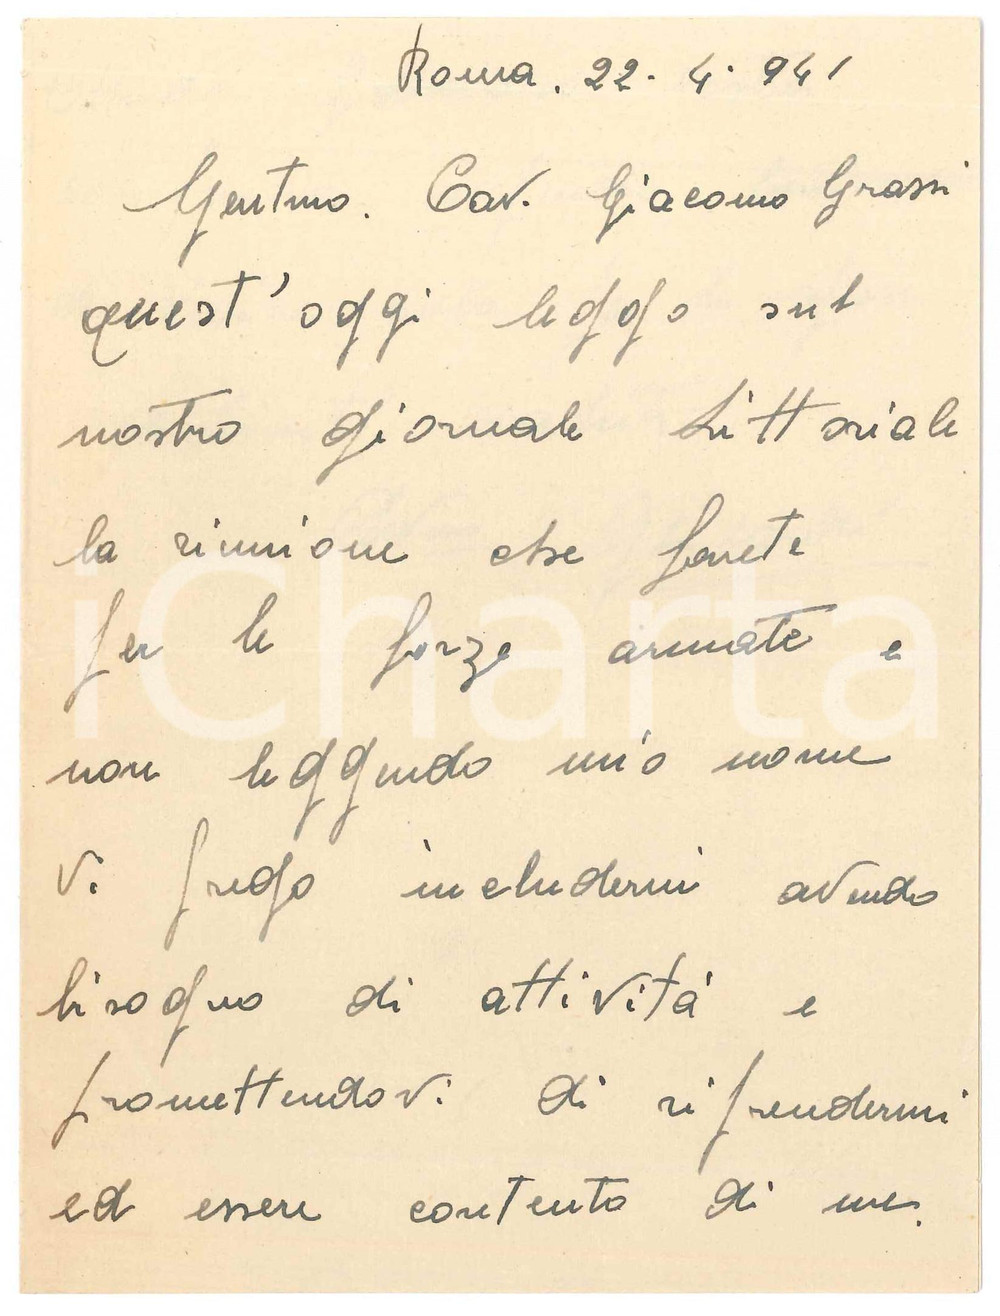 Roma. 22. 4. 941
Gentmo. Cav. Giacomo Grassi
quest'oggi leggo sul
nostro giornale Littoriale
la riunione che farete
per le forze armate e
non leggendo mio nome
vi prego includermi avendo
bisogno di attività e
promettendovi di riprendermi
ed essere contento di me.
iCharta